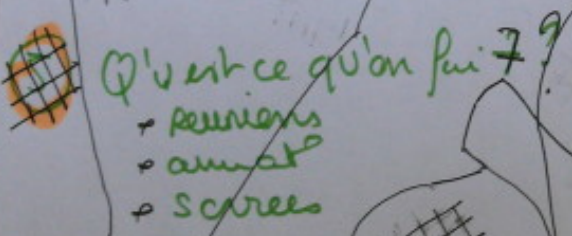 Q'u est ce qu'on fai 7 ?
• reunions
• animat°
• soirees